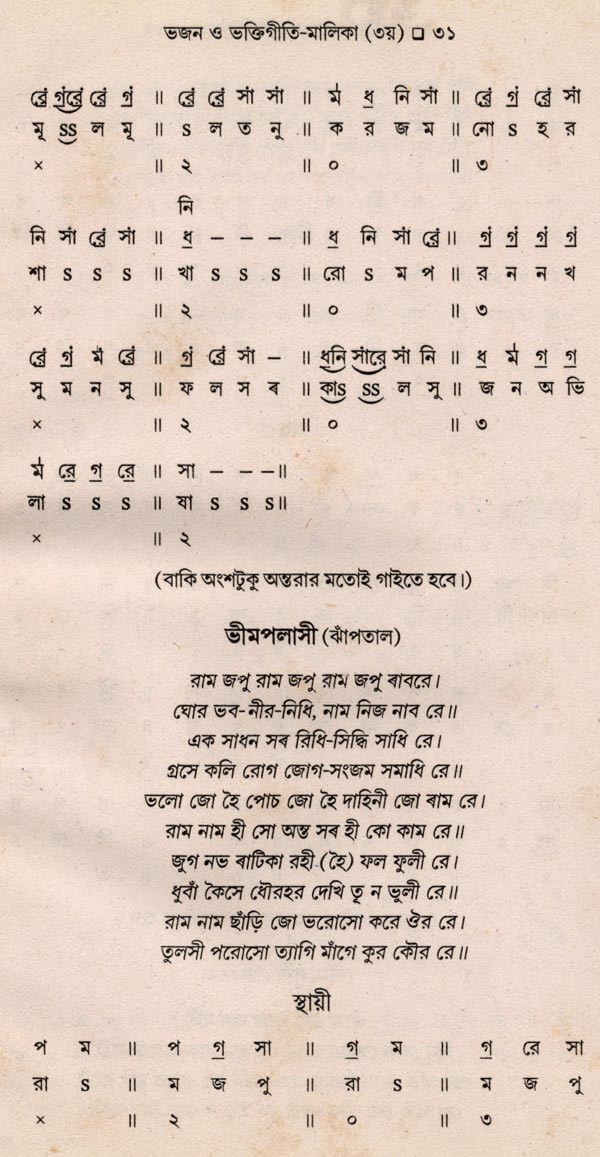 ভজন ও ভক্তিগীতি-মালিকা (৩য়) □ ৩১
রেঁ গঁরেঁ রেঁ গঁ ॥ রেঁ রেঁ সাঁ সাঁ ॥ র্ম ধ নি সাঁ ॥ রেঁ গঁ রেঁ সাঁ
মৃ ss ল মৃ ॥ s ল ত নু ॥ ক র জ ম ॥ নো s হ র
× ॥ ২ ॥ ০ ॥ ৩
নি
নি সাঁ রেঁ সাঁ ॥ ধ – – – ॥ ধ নি সাঁ রেঁ ॥ গঁ গঁ গঁ গঁ
শা s s s ॥ খা s s s ॥ রো s ম প ॥ র ন ন খ
× ॥ ২ ॥ ০ ॥ ৩
রেঁ গঁ মঁ রেঁ ॥ গঁ রেঁ সাঁ – ॥ ধনি সাঁরে সাঁ নি ॥ ধ র্ম গ গ
সু ম ন সু ॥ ফ ল স ৰ ॥ কাs ss ল সু ॥ জ ন অ ভি
× ॥ ২ ॥ ০ ॥ ৩
র্ম রে গ রে ॥ সা – – –॥
লা s s s ॥ ষা s s s॥
× ॥ ২
(বাকি অংশটুকু অন্তরার মতোই গাইতে হবে।)
ভীমপলাসী (ঝাঁপতাল)
রাম জপু রাম জপু রাম জপু ৰাবরে।
ঘোর ভব-নীর-নিধি, নাম নিজ নাব রে॥
এক সাধন সৰ রিধি-সিদ্ধি সাধি রে।
গ্রসে কলি রোগ জোগ-সংজম সমাধি রে॥
ভলো জো হৈ পোচ জো হৈ দাহিনী জো ৰাম রে।
রাম নাম হী সো অন্ত সৰ হী কো কাম রে॥
জুগ নভ ৰাটিকা রহী (হৈ) ফল ফুলী রে।
ধুবাঁ কৈসে ধৌরহর দেখি তূ ন ভূলী রে॥
রাম নাম ছাঁড়ি জো ভরোসো করে ঔর রে।
তুলসী পরোসো ত্যাগি মাঁগে কুর কৌর রে॥
স্থায়ী
প ম ॥ প গ সা ॥ গ ম ॥ গ রে সা
রা s ॥ ম জ পু ॥ রা s ॥ ম জ পু
× ॥ ২ ॥ ০ ॥ ৩